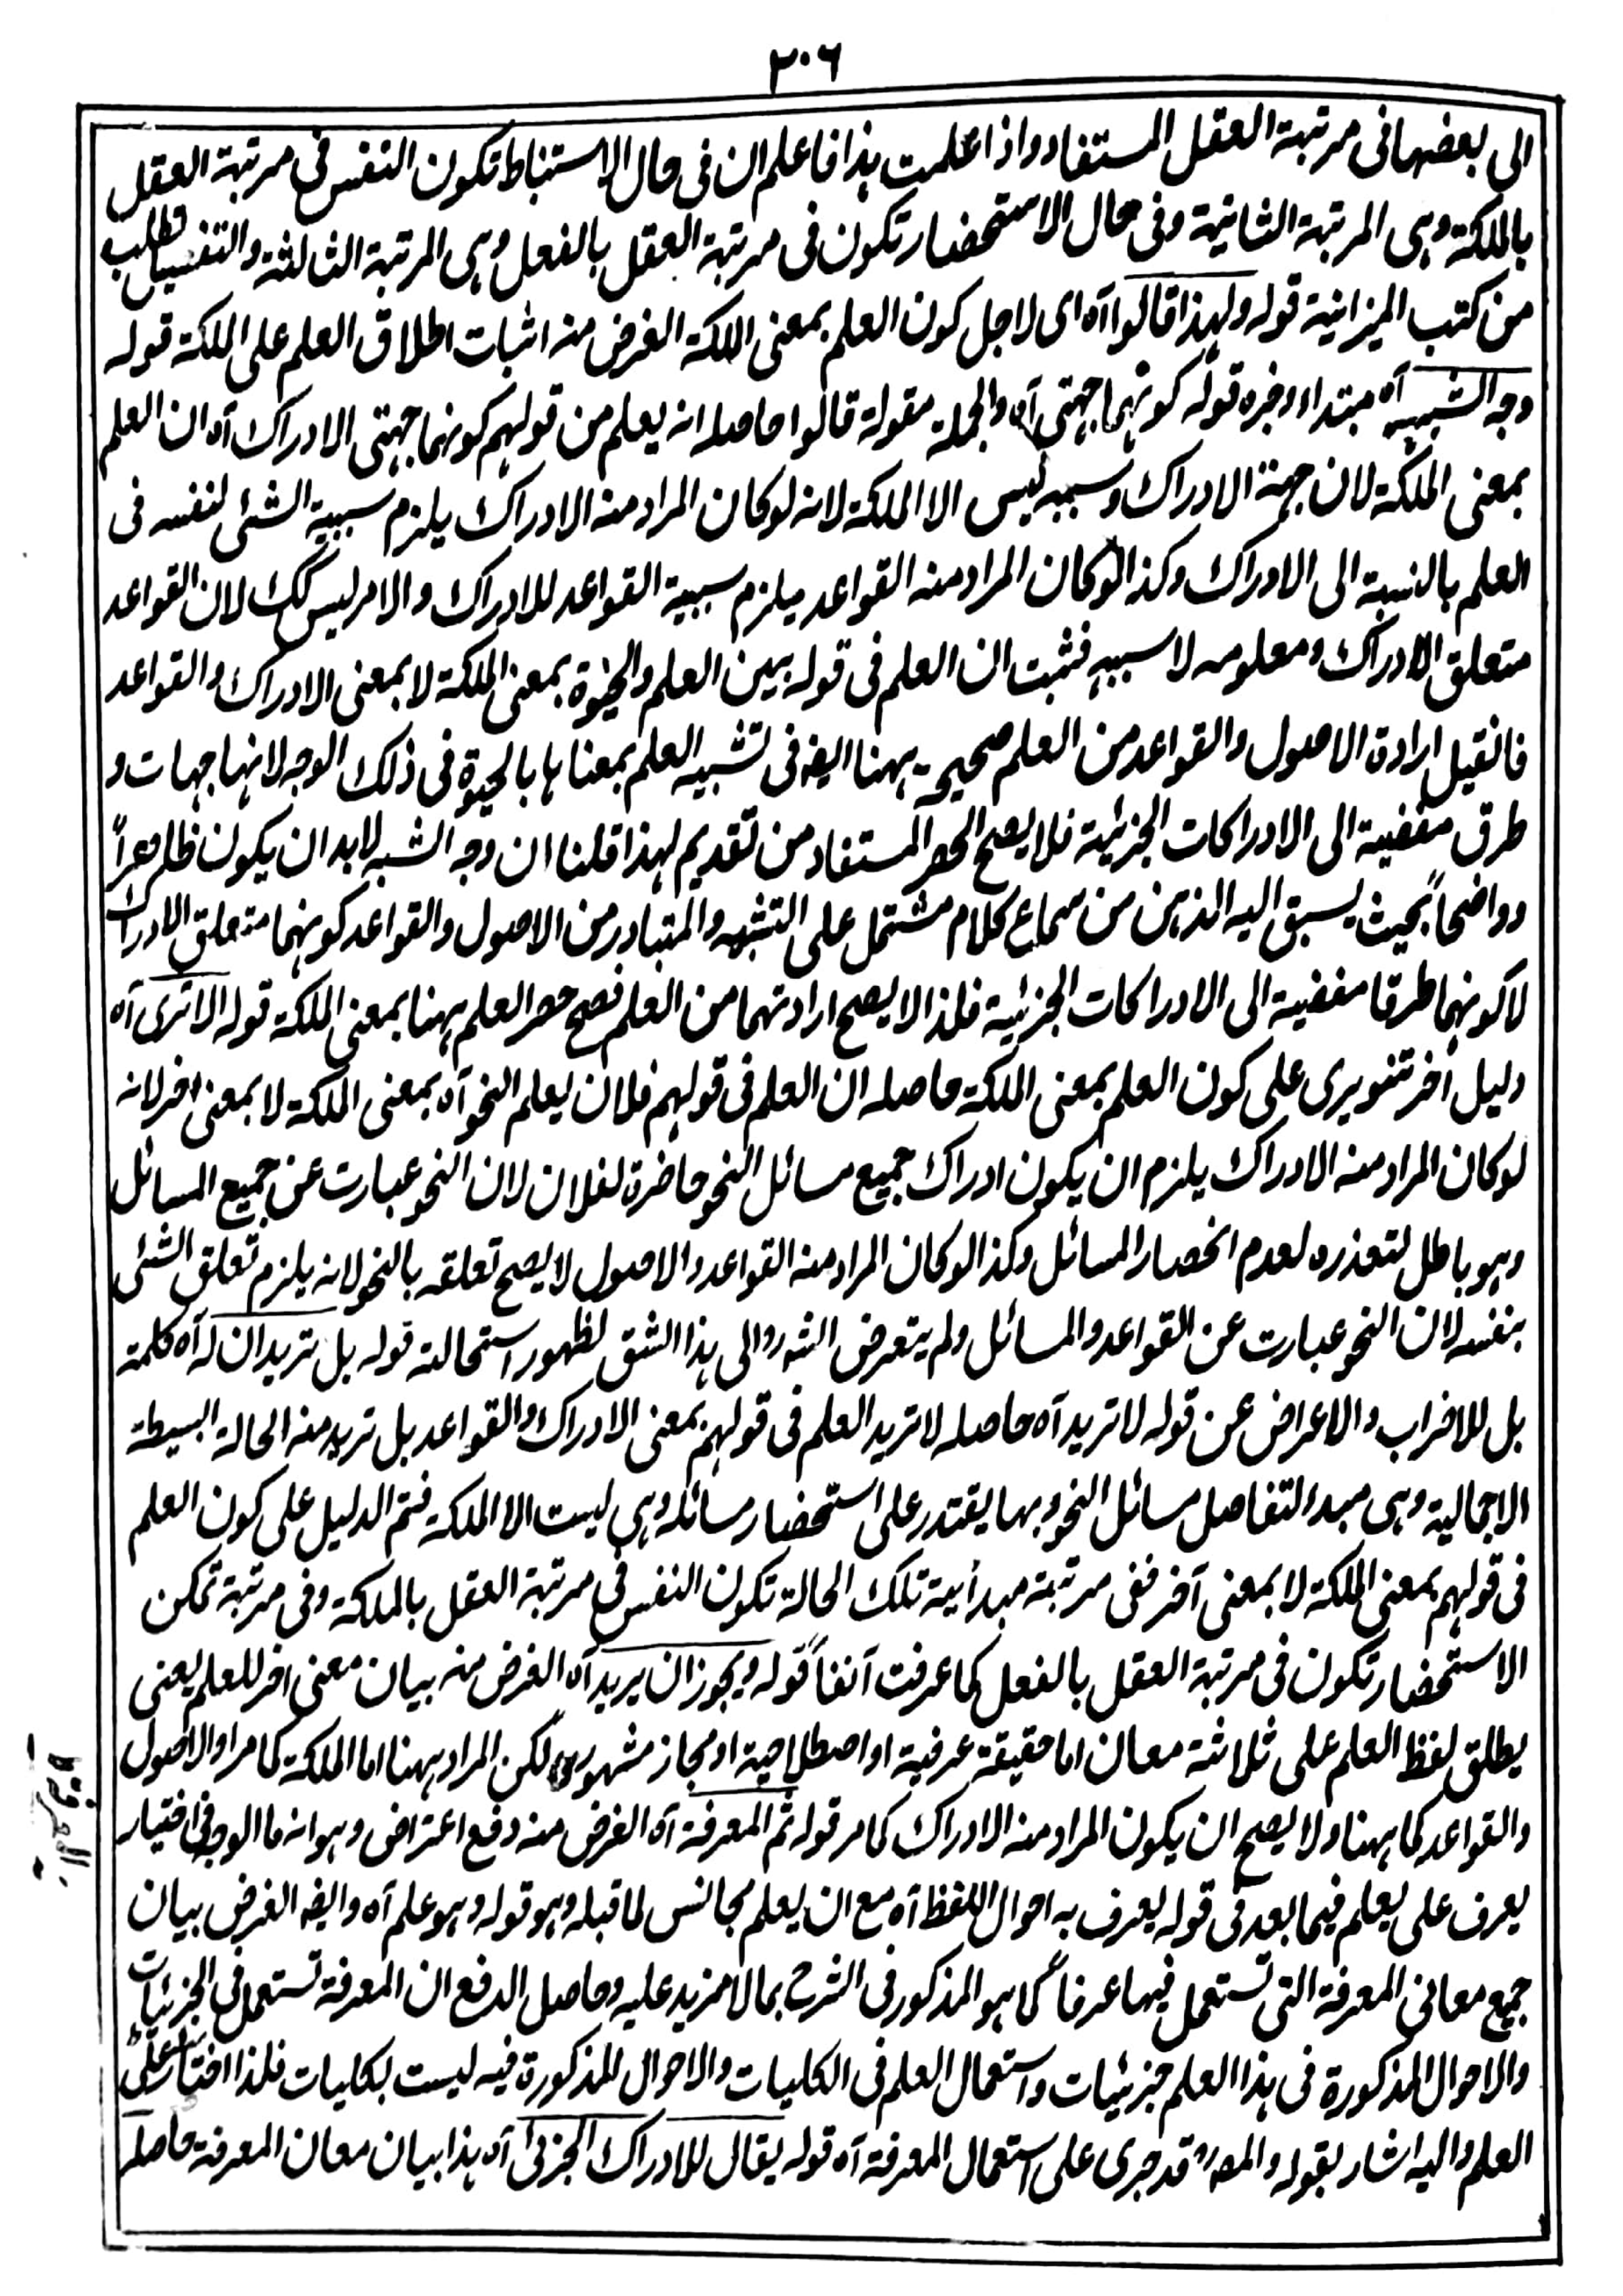 ٢٠٦
الى بعضها فى مرتبة العقل المستفاد واذا علمت هذا فاعلم ان فى حال الاستنباط تكون النفس فى مرتبة العقل
بالملكة وهى المرتبة الثانية وفى حال الاستحضار تكون فى مرتبة العقل بالفعل وهى المرتبة الثالثة والتفصيل يطلب
من كتب الميزانية قوله ولهذا قالوا آه اى لاجل كون العلم بمعنى الملكة الغرض منه اثبات اطلاق العلم على الملكة قوله
وجه الشبه آه مبتداء وخبره قوله كونهما جهتى آه والجملة مقولة قالوا حاصله انه يعلم من قولهم كونهما جهتى الادراك آه ان العلم
بمعنى الملكة لان جهة الادراك وسببه ليس الا الملكة لانه لو كان المراد منه الادراك يلزم سببية الشئ لنفسه فى
العلم بالنسبة الى الادراك وكذا لو كان المراد منه القواعد يلزم سببية القواعد للادراك والامر ليس كك لان القواعد
متعلق الادراك ومعلومه لا سببه فثبت ان العلم فى قوله بين العلم والحيوة بمعنى الملكة لا بمعنى الادراك والقواعد
فان قيل ارادة الاصول والقواعد من العلم صحيح ههنا ايضا فى تشبيه العلم بمعناها بالحيوة فى ذلك الوجه لانها جهات و
طرق مفضية الى الادراكات الجزئية فلا يصح الحصر المستفاد من تقديم لهذا قلنا ان وجه الشبه لابد ان يكون ظاهراً
وواضحاً بحيث يسبق اليه الذهن من سماع كلام مشتمل على التشبه والمتبادر من الاصول والقواعد كونهما متعلق الادراك
لا كونهما طرقا مفضية الى الادراكات الجزئية فلذا لا يصح ارادتهما من العلم فصح حصر العلم ههنا بمعنى الملكة قوله الا ترى آه
دليل آخر تنويرى على كون العلم بمعنى الملكة حاصله ان العلم فى قولهم فلان يعلم النحو آه بمعنى الملكة لا بمعنى اخر لانه
لو كان المراد منه الادراك يلزم ان يكون ادراك جميع مسائل النحو حاضرة لفلان لان النحو عبارت عن جميع المسائل
وهو باطل لتعذره لعدم انحصار المسائل وكذا لو كان المراد منه القواعد والاصول لا يصح تعلقه بالنحو لانه يلزم تعلق الشئ
بنفسه لان النحو عبارت عن القواعد والمسائل ولم يتعرض الشه رو الى هذا الشق لظهور استحالته قوله بل تريد ان له آه كلمة
بل للاضراب والاعراض عن قوله لا تريد آه حاصله لا تريد العلم فى قولهم بمعنى الادراك والقواعد بل تريد منه الحالة البسيطة
الاجمالية وهى مبدء التفاصل مسائل النحو وبها يقتدر على استحضار مسائله وهى ليست الا الملكة فتم الدليل على كون العلم
فى قولهم بمعنى الملكة لا بمعنى آخر ففى مرتبة مبدأية تلك الحالة تكون النفس فى مرتبة العقل بالملكة وفى مرتبة تمكن
الاستحضار تكون فى مرتبة العقل بالفعل كما عرفت آنفاً قوله ويجوز ان يريد آه الغرض منه بيان معنى اخر للعلم يعنى
يطلق لفظ العلم على ثلاثة معان اما حقيقة عرفية او اصطلاحية او مجاز مشهور لكن المراد ههنا اما الملكة كما مر او الاصول
والقواعد كما ههنا ولا يصح ان يكون المراد منه الادراك كما مر قوله ثم المعرفة آه الغرض منه دفع اعتراض وهو انه ما الوجه فى اختيار
يعرف على يعلم فيما بعد فى قوله يعرف به احوال اللفظ آه مع ان يعلم مجانس لما قبله وهو قوله وهو علم آه وايضا الغرض بيان
جميع معانى المعرفة التى تستعمل فيها عرفاً كما هو المذكور فى الشرح بما لا مزيد عليه وحاصل الدفع ان المعرفة تستعمل فى الجزئيات
والاحوال المذكورة فى هذا العلم جزئيات واستعمال العلم فى الكليات والاحوال المذكورة فيه ليست بكليات فلذا اختار على
العلم واليه اشار بقوله والمصه قد جرى على استعمال المعرفة آه قوله يقال للادراك الجزئى آه هذا بيان معان المعرفة حاصله